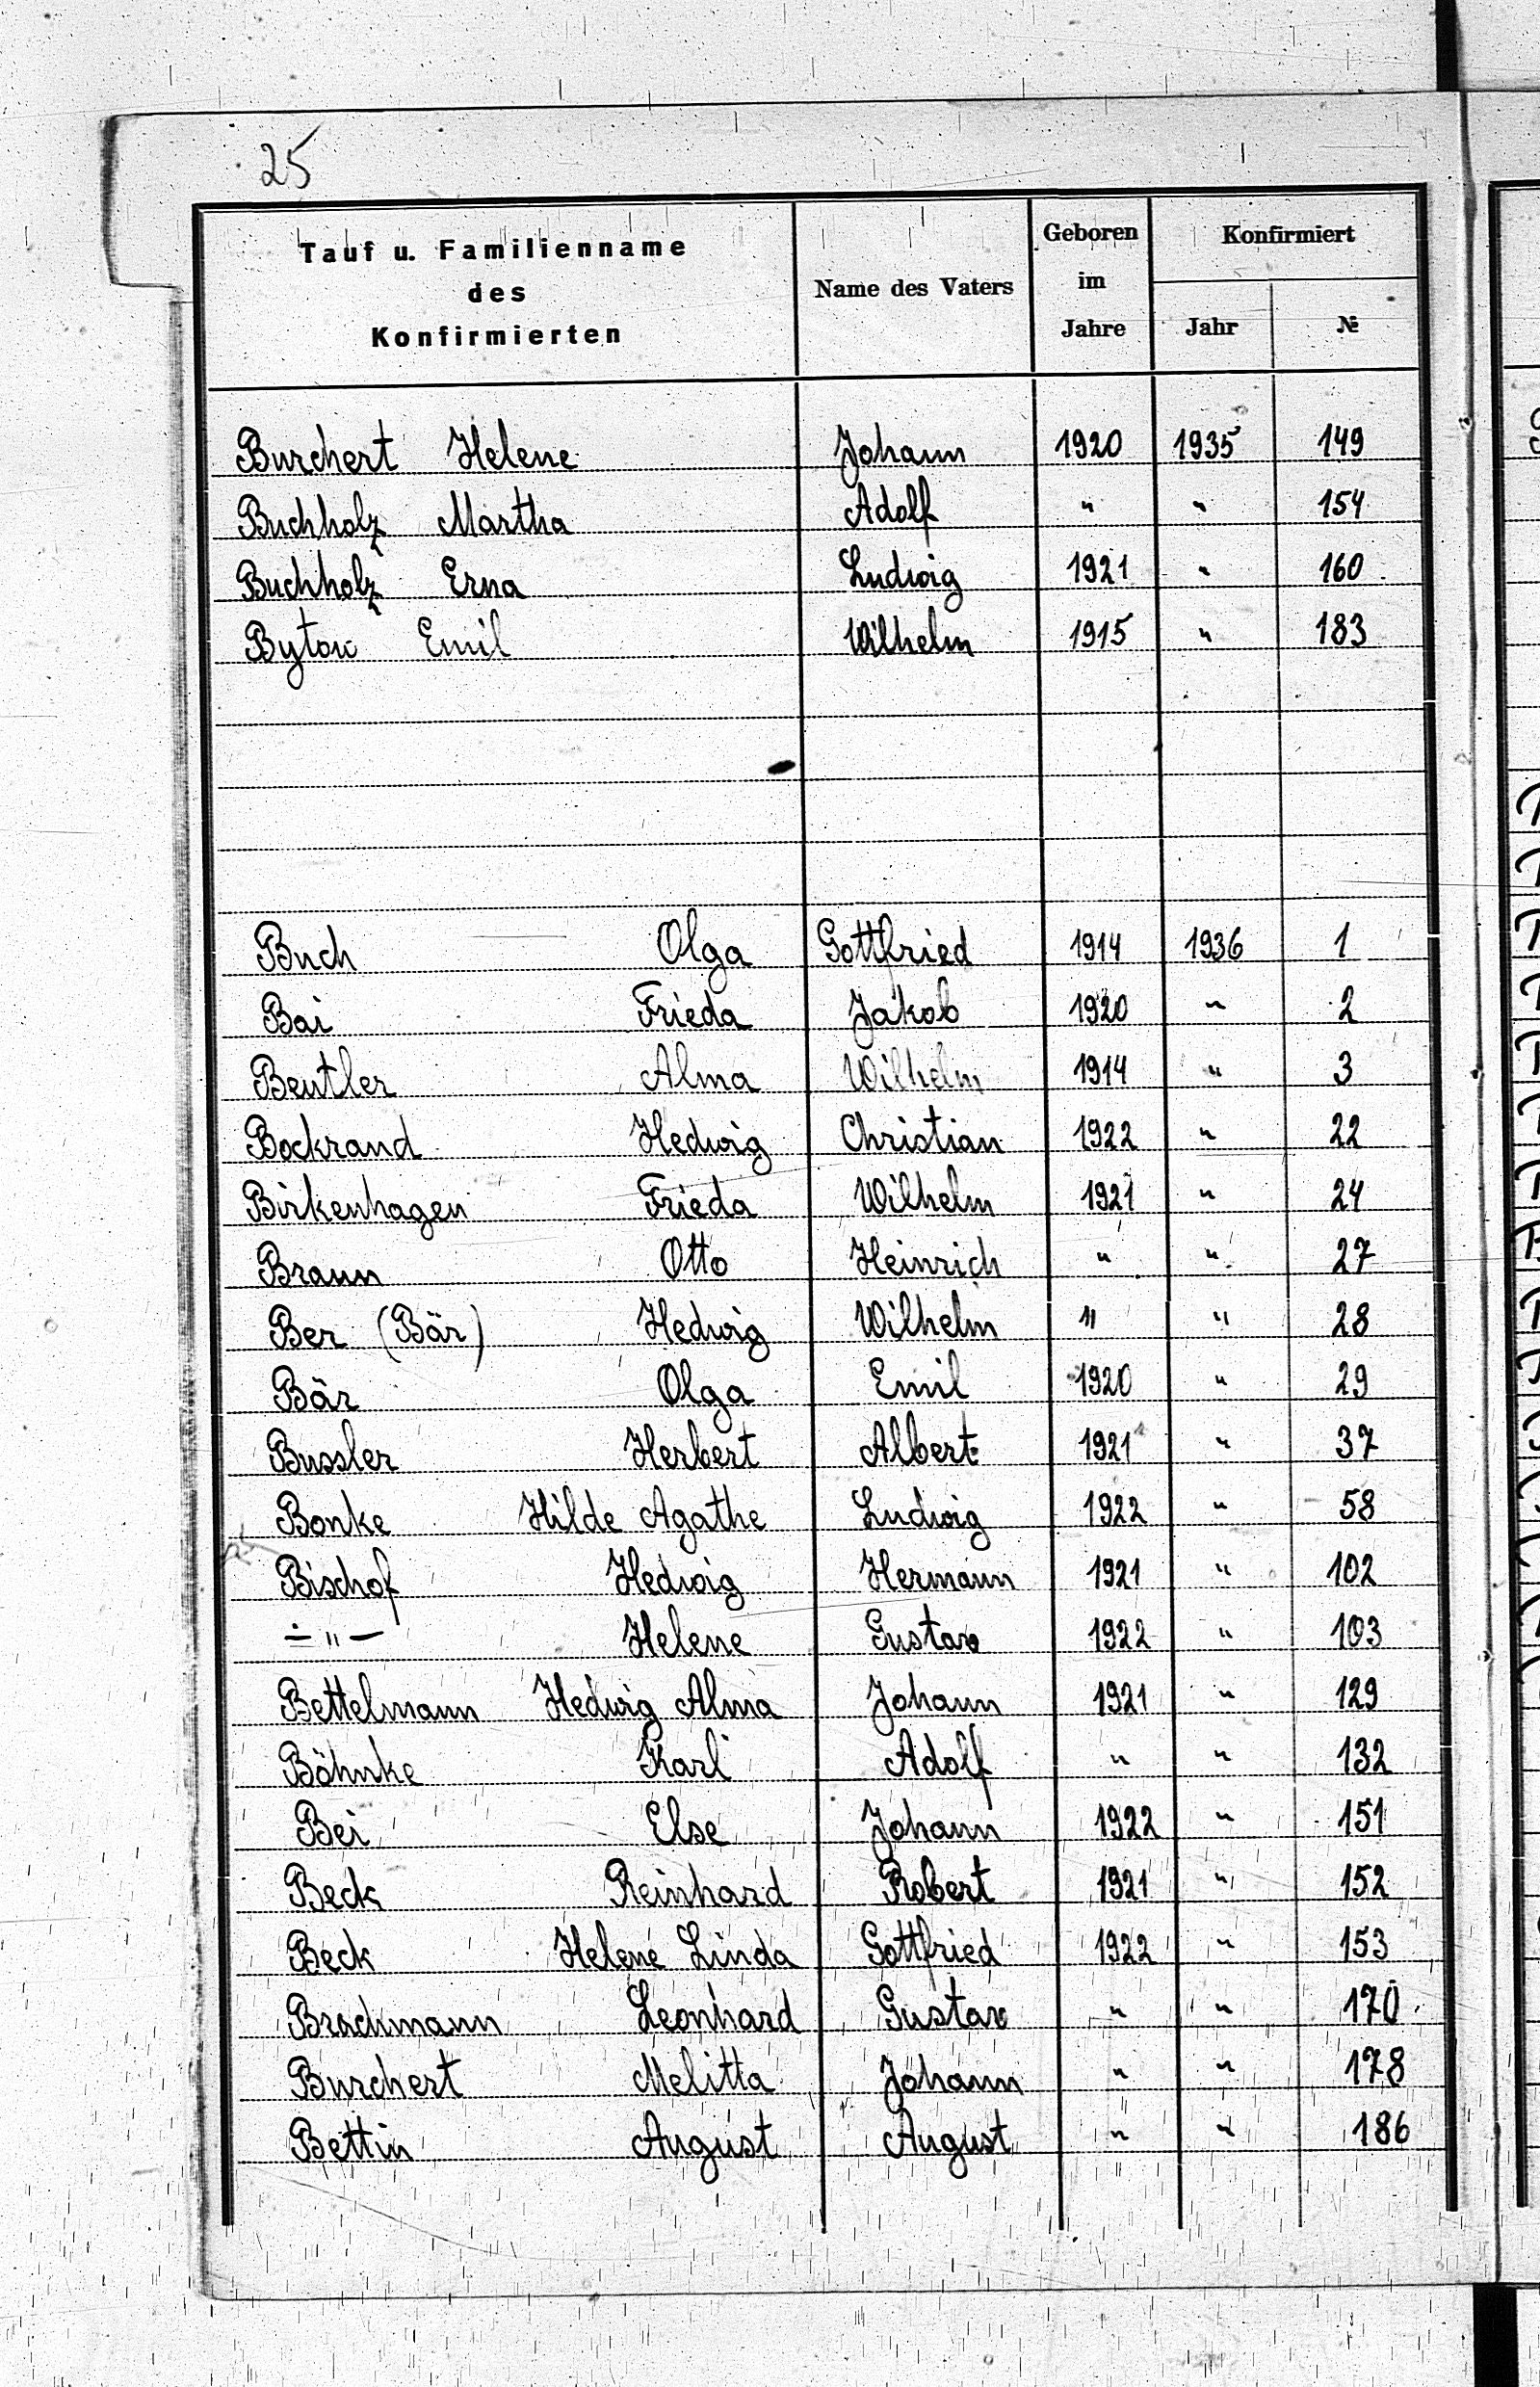 25
Tauf u. Familienname des Konfirmierten | Name des Vaters | Geboren im Jahre | Konfirmiert Jahr | №
Burchert Helene | Johann | 1920 | 1935 | 149
Buchholz Martha | Adolf | " | " | 154
Buchholz Erna | Ludwig | 1921 | " | 160
Bytow Emil | Wilhelm | 1915 | " | 183
Buch — Olga | Gottfried | 1914 | 1936 | 1
Bai Frieda | Jakob | 1920 | " | 2
Beutler Alma | Wilhelm | 1914 | " | 3
Bockrand Hedwig | Christian | 1922 | " | 22
Birkenhagen Frieda | Wilhelm | 1921 | " | 24
Braun Otto | Heinrich | " | " | 27
Ber (Bär) Hedwig | Wilhelm | " | " | 28
Bär Olga | Emil | 1920 | " | 29
Bussler Herbert | Albert | 1921 | " | 37
Bonke Hilde Agathe | Ludwig | 1922 | " | 58
Bischof Hedwig | Hermann | 1921 | " | 102
— " — Helene | Gustav | 1922 | " | 103
Bettelmann Hedwig Alma | Johann | 1921 | " | 129
Böhnke Karl | Adolf | " | " | 132
Bei Else | Johann | 1922 | " | 151
Beck Reinhard | Robert | 1921 | " | 152
Beck Helene Linda | Gottfried | 1922 | " | 153
Brachmann Leonhard | Gustav | " | " | 170
Burchert Melitta | Johann | " | " | 178
Bettin August | August | " | " | 186